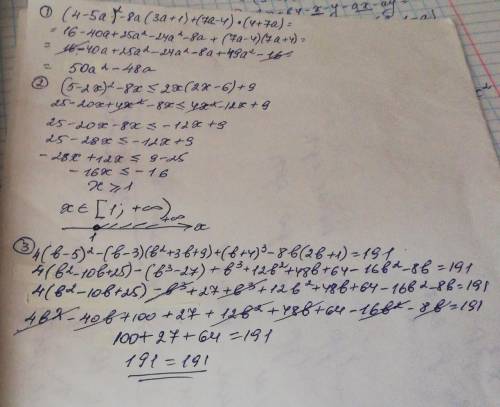 ① (4-5a)²-8a(3a+1)+(7a-4)·(4+7a)=
= 16-40a+25a²-24a²-8a+(7a-4)(7a+4)=
= 16-40a+25a²-24a²-8a+49a²-16=
= 50a²-48a
② (5-2x)²-8x≤2x(2x-6)+9
25-20x+4x²-8x≤4x²-12x+9
25-20x-8x≤-12x+9
25-28x≤-12x+9
-28x+12x≤9-25
-16x≤-16
x≥1
x∈[1;+∞)
+∞
1 x
③ 4(b-5)²-(b-3)(b²+3b+9)+(b+4)³-8b(2b+1)=191
4(b²-10b+25)-(b³-27)+b³+12b²+48b+64-16b²-8b=191
4(b²-10b+25)-b³+27+b³+12b²+48b+64-16b²-8b=191
4b²-40b+100+27+12b²+48b+64-16b²-8b=191
100+27+64=191
191=191